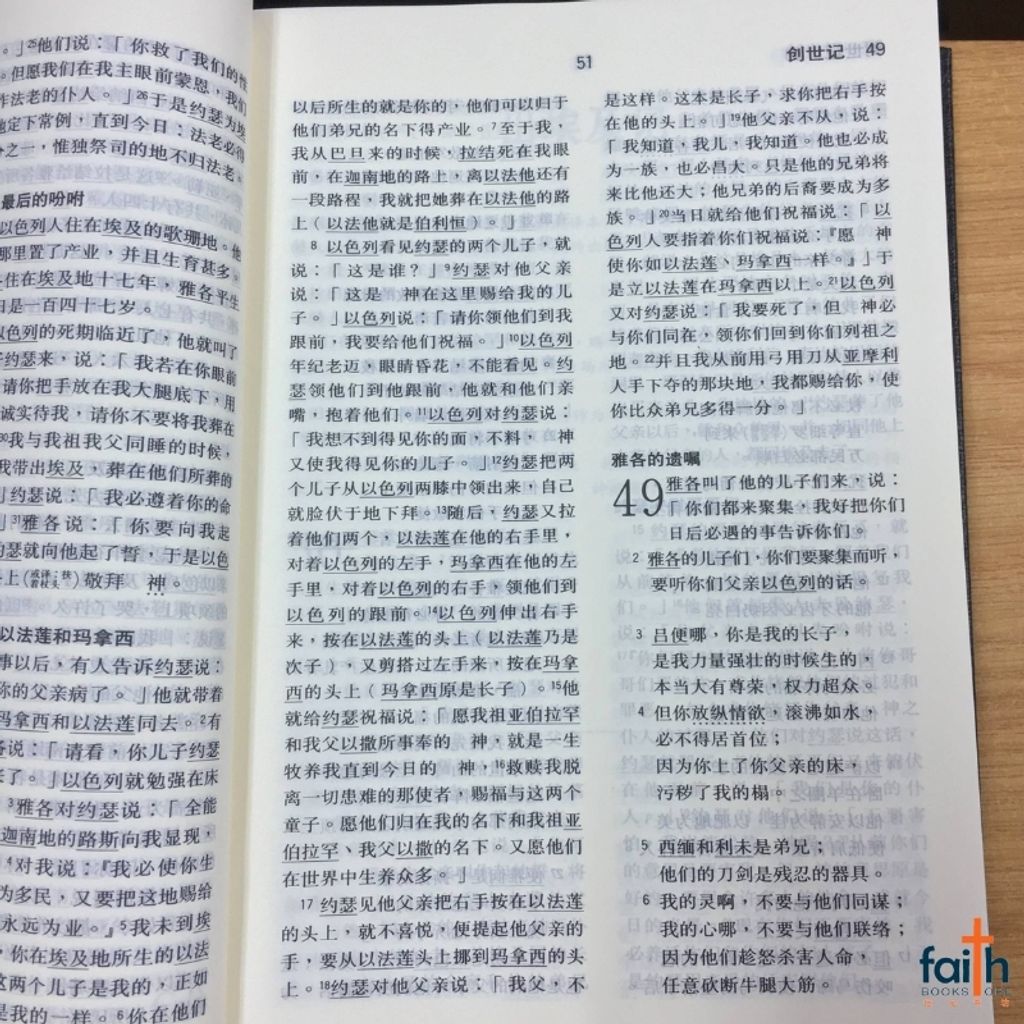 。」²⁵他们说：「你救了我们的性
。但愿我们在我主眼前蒙恩，我们
作法老的仆人。」²⁶于是约瑟为埃
地定下常例，直到今日：法老必得
分之一，惟独祭司的地不归法老。
最后的吩咐
以色列人住在埃及的歌珊地。他
那里置了产业，并且生育甚多。
住在埃及地十七年，雅各平生
日是一百四十七岁。
以色列的死期临近了，他就叫了
约瑟来，说：「我若在你眼前
请你把手放在我大腿底下，用
诚实待我，请你不要将我葬在
³⁰我与我祖我父同睡的时候，
我带出埃及，葬在他们所葬的
」约瑟说：「我必遵着你的命
」³¹雅各说：「你要向我起
约瑟就向他起了誓，于是以色
上敬拜　神。
以法莲和玛拿西
事以后，有人告诉约瑟说：
你的父亲病了。」他就带着
玛拿西和以法莲同去。²有
说：「请看，你儿子约瑟
来了。」以色列就勉强在床
³雅各对约瑟说：「全能
迦南地的路斯向我显现，
⁴对我说：『我必使你生
为多民，又要把这地赐给
永远为业。』⁵我未到埃
你在埃及地所生的以法
这两个儿子是我的，正如
是我的一样。⁶你在他们
51
创世记 49
以后所生的就是你的，他们可以归于
他们弟兄的名下得产业。⁷至于我，
我从巴旦来的时候，拉结死在我眼
前，在迦南地的路上，离以法他还有
一段路程，我就把她葬在以法他的路
上（以法他就是伯利恒）。」
8 以色列看见约瑟的两个儿子，就
说：「这是谁？」⁹约瑟对他父亲
说：「这是　神在这里赐给我的儿
子。」以色列说：「请你领他们到我
跟前，我要给他们祝福。」¹⁰以色列
年纪老迈，眼睛昏花，不能看见。约
瑟领他们到他跟前，他就和他们亲
嘴，抱着他们。¹¹以色列对约瑟说：
「我想不到得见你的面，不料，　神
又使我得见你的儿子。」¹²约瑟把两
个儿子从以色列两膝中领出来，自己
就脸伏于地下拜。¹³随后，约瑟又拉
着他们两个，以法莲在他的右手里，
对着以色列的左手，玛拿西在他的左
手里，对着以色列的右手，领他们到
以色列的跟前。¹⁴以色列伸出右手
来，按在以法莲的头上（以法莲乃是
次子），又剪搭过左手来，按在玛拿
西的头上（玛拿西原是长子）。¹⁵他
就给约瑟祝福说：「愿我祖亚伯拉罕
和我父以撒所事奉的　神，就是一生
牧养我直到今日的　神，¹⁶救赎我脱
离一切患难的那使者，赐福与这两个
童子。愿他们归在我的名下和我祖亚
伯拉罕、我父以撒的名下。又愿他们
在世界中生养众多。」
17 约瑟见他父亲把右手按在以法莲
的头上，就不喜悦，便提起他父亲的
手，要从以法莲头上挪到玛拿西的头
上。¹⁸约瑟对他父亲说：「我父，不
是这样。这本是长子，求你把右手按
在他的头上。」¹⁹他父亲不从，说：
「我知道，我儿，我知道。他也必成
为一族，也必昌大。只是他的兄弟将
来比他还大；他兄弟的后裔要成为多
族。」²⁰当日就给他们祝福说：「以
色列人要指着你们祝福说：『愿　神
使你如以法莲、玛拿西一样。』」于
是立以法莲在玛拿西以上。²¹以色列
又对约瑟说：「我要死了，但　神必
与你们同在，领你们回到你们列祖之
地。²²并且我从前用弓用刀从亚摩利
人手下夺的那块地，我都赐给你，使
你比众弟兄多得一分。」
雅各的遗嘱
49 雅各叫了他的儿子们来，说：
「你们都来聚集，我好把你们
日后必遇的事告诉你们。
2 雅各的儿子们，你们要聚集而听，
要听你们父亲以色列的话。
3 吕便哪，你是我的长子，
是我力量强壮的时候生的，
本当大有尊荣，权力超众。
4 但你放纵情欲，滚沸如水，
必不得居首位；
因为你上了你父亲的床，
污秽了我的榻。
5 西缅和利未是弟兄；
他们的刀剑是残忍的器具。
6 我的灵啊，不要与他们同谋；
我的心哪，不要与他们联络；
因为他们趁怒杀害人命，
任意砍断牛腿大筋。
faith
BOOKSTORE